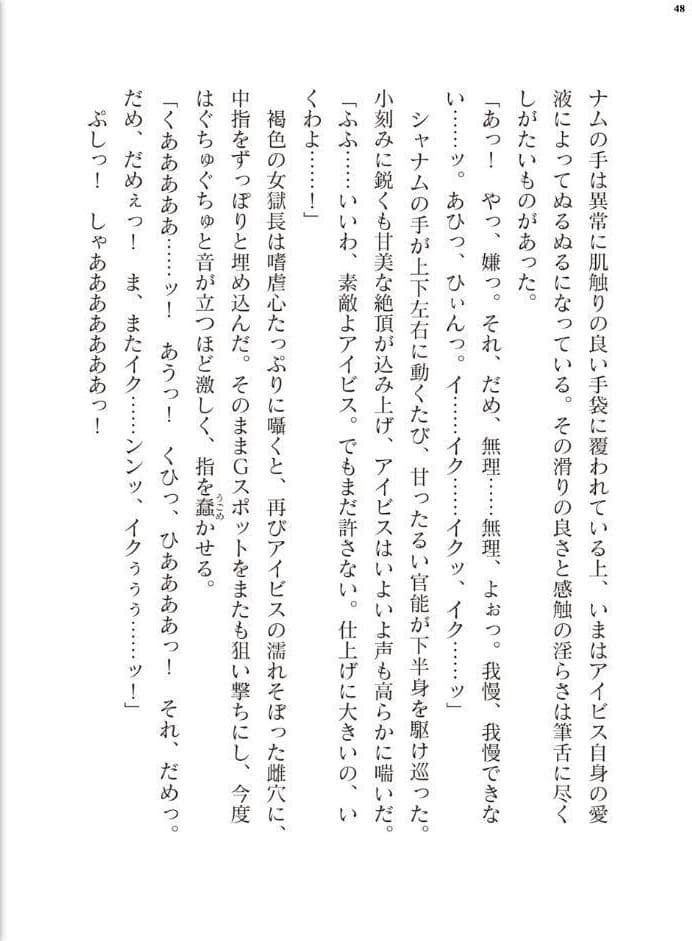 48
ナムの手は異常に肌触りの良い手袋に覆われている上、いまはアイビス自身の愛
液によってぬるぬるになっている。その滑りの良さと感触の淫らさは筆舌に尽く
しがたいものがあった。
「あっ！　やっ、嫌っ。それ、だめ、無理……無理、よぉっ。我慢、我慢できな
い……ッ。あひっ、ひぃんっ。イ……イク……イクッ、イク……ッ」
　シャナムの手が上下左右に動くたび、甘ったるい官能が下半身を駆け巡った。
小刻みに鋭くも甘美な絶頂が込み上げ、アイビスはいよいよ声も高らかに喘いだ。
「ふふ……いいわ、素敵よアイビス。でもまだ許さない。仕上げに大きいの、い
くわよ……！」
　褐色の女獄長は嗜虐心たっぷりに囁くと、再びアイビスの濡れそぼった雌穴に、
中指をずっぽりと埋め込んだ。そのままＧスポットをまたも狙い撃ちにし、今度
はぐちゅぐちゅと音が立つほど激しく、指を蠢うごめかせる。
「くあああああ……ッ！　あうっ！　くひっ、ひああああっ！　それ、だめっ。
だめ、だめぇっ！　ま、またイク……ンンッ、イクぅぅぅ……ッ！」
　ぷしっ！　しゃああああああああっ！